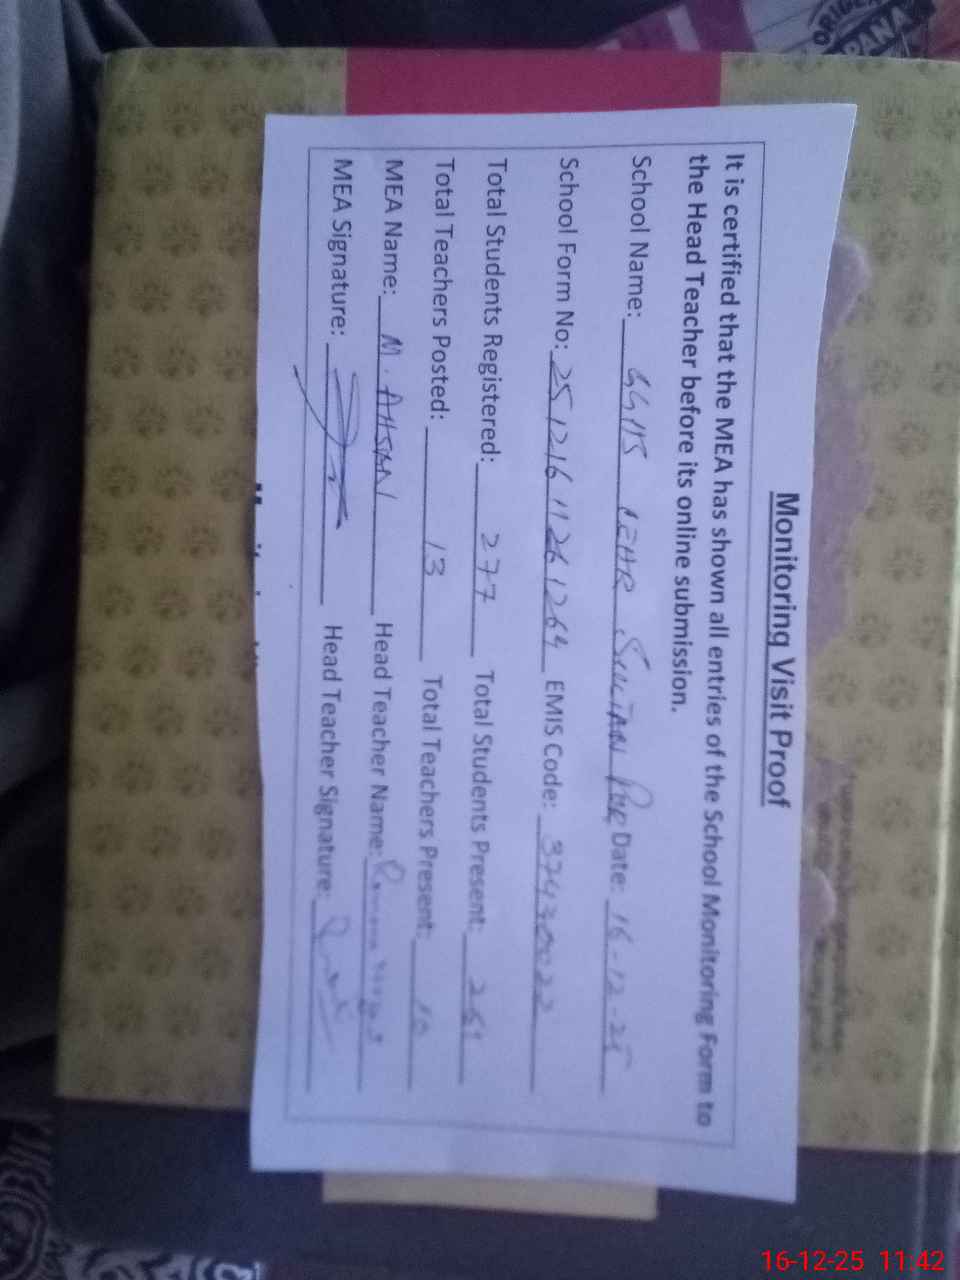 Monitoring Visit Proof
It is certified that the MEA has shown all entries of the School Monitoring Form to
the Head Teacher before its online submission.
School Name: GGHS Date: 16-12-25
School Form No: 25121611261264 EMIS Code: 37430022
Total Students Registered: 277 Total Students Present:
Total Teachers Posted: 13 Total Teachers Present: 10
MEA Name: M. AHSAN Head Teacher Name:
MEA Signature: Head Teacher Signature:
16-12-25 11:42